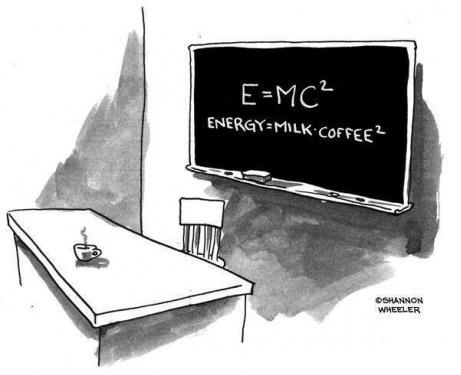 E=MC²
ENERGY=MILK·COFFEE²
©SHANNON
WHEELER